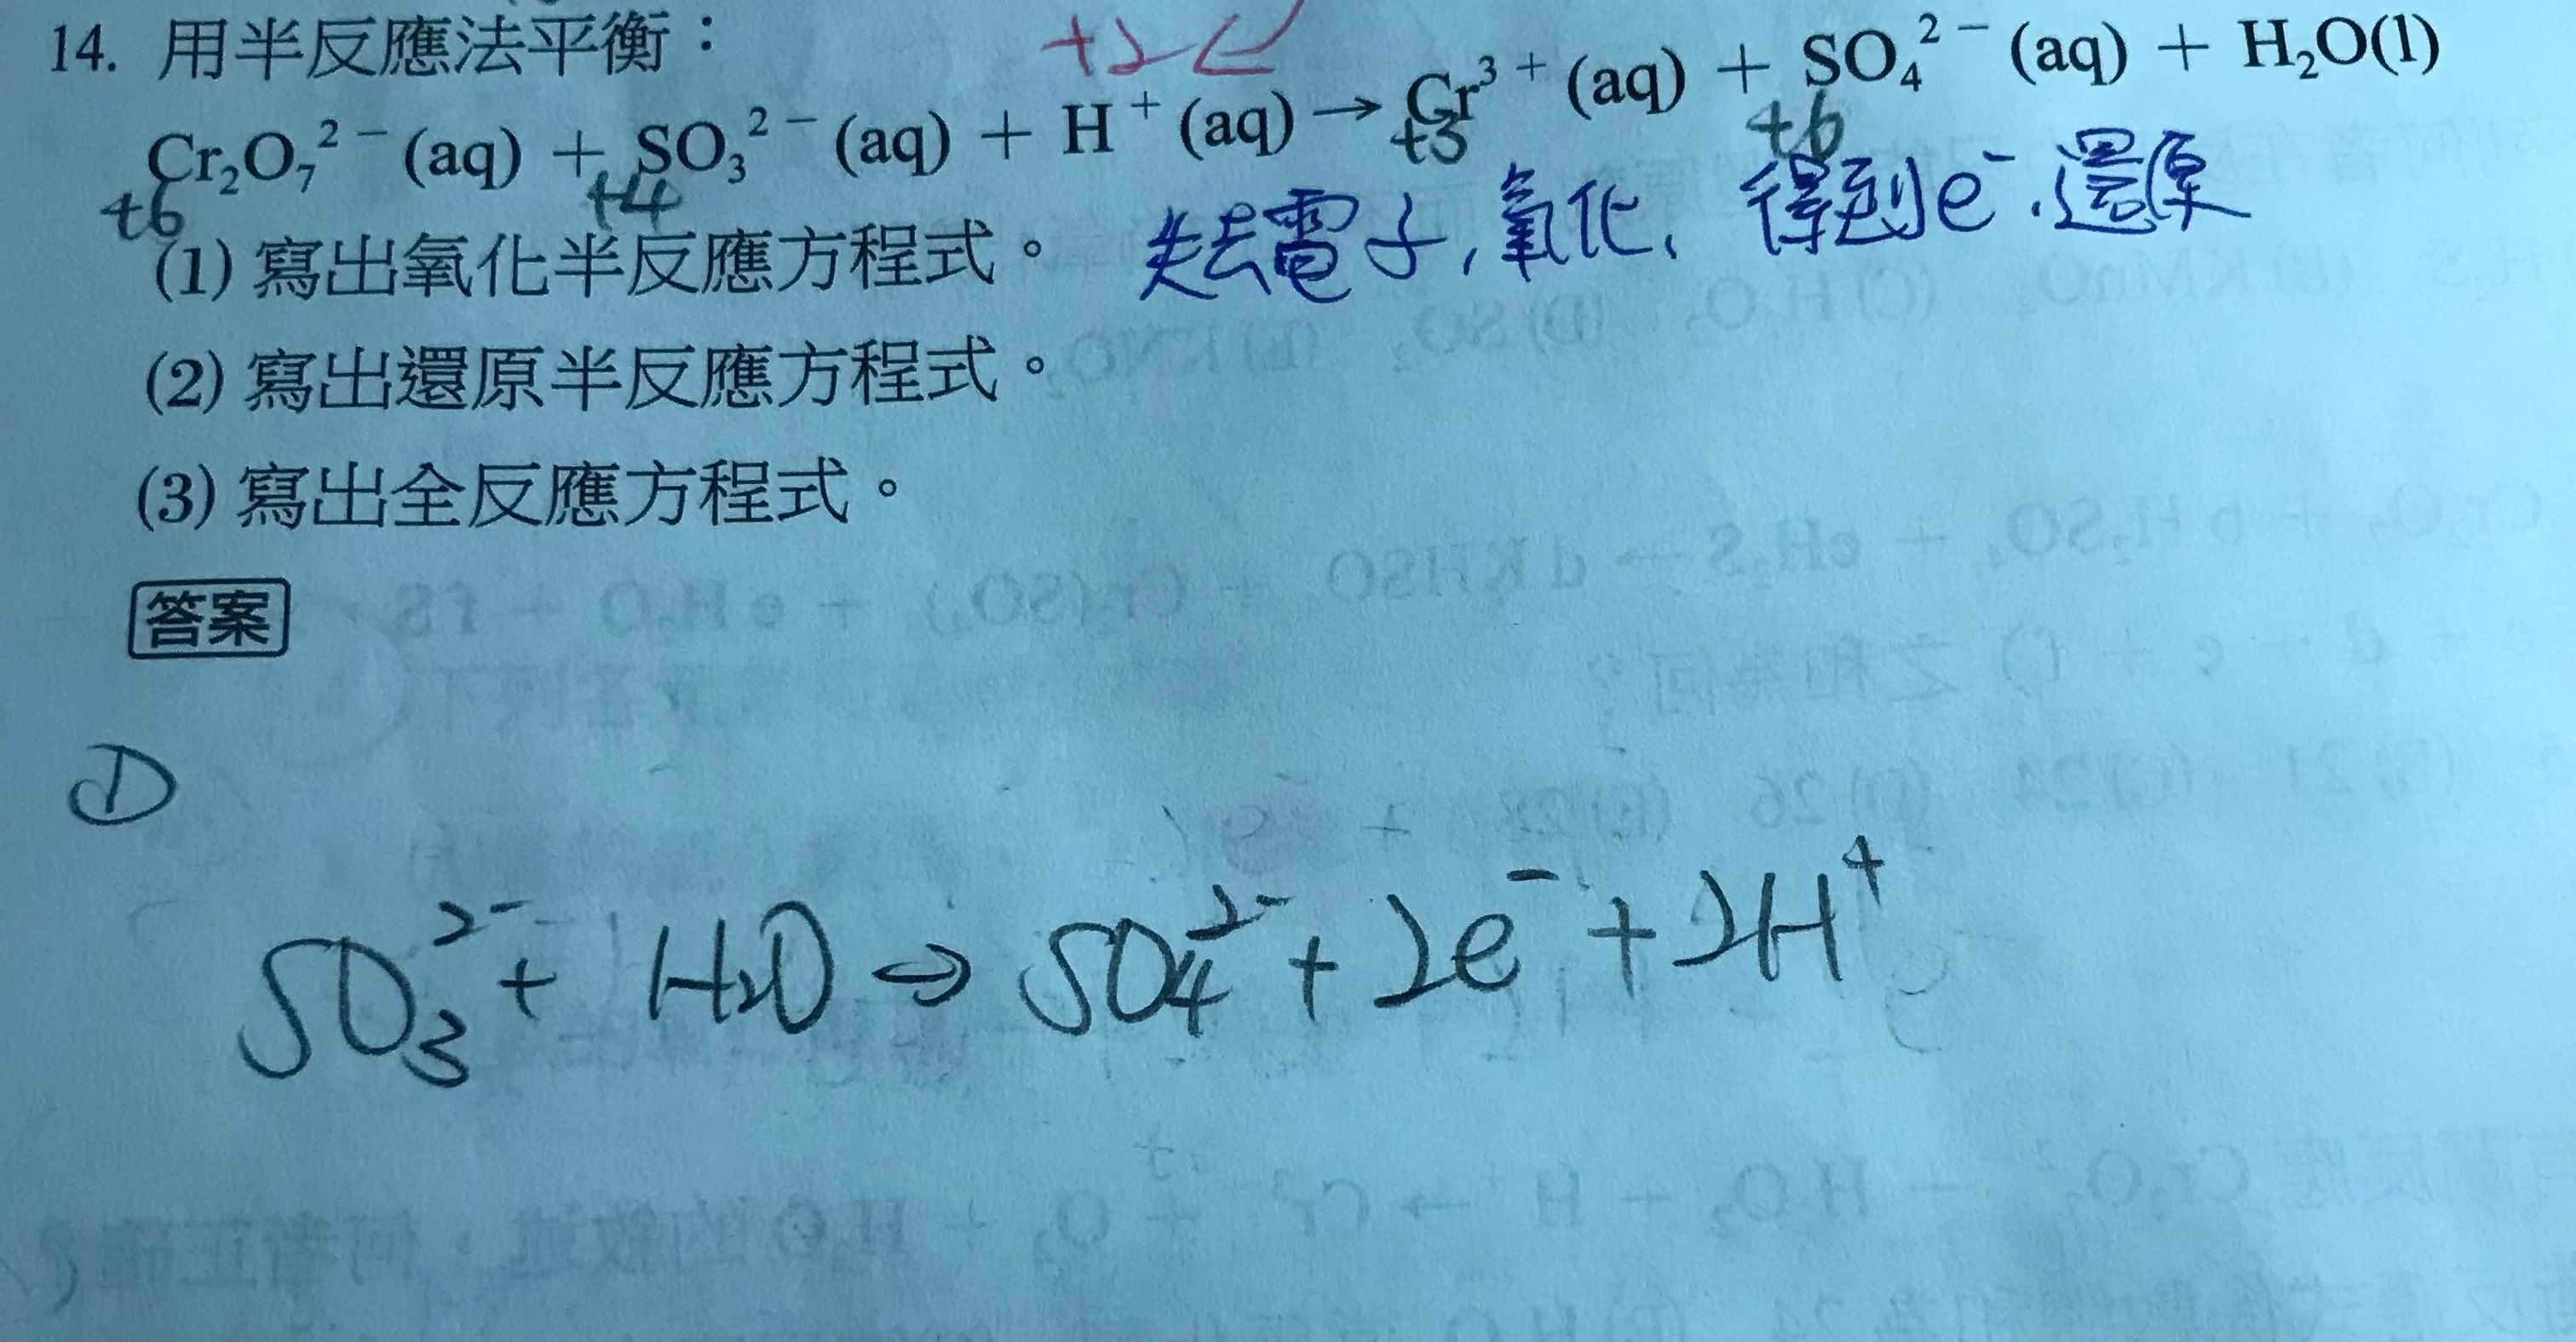 14. 用半反應法平衡：
+2
Cr₂O₇²⁻(aq) + SO₃²⁻(aq) + H⁺(aq) → Cr³⁺(aq) + SO₄²⁻(aq) + H₂O(l)
+6 +4 +3 +6
(1) 寫出氧化半反應方程式。 失去電子,氧化、得到e⁻.還原
(2) 寫出還原半反應方程式。
(3) 寫出全反應方程式。
答案
①
SO₃²⁻ + H₂O → SO₄²⁻ + 2e⁻ + 2H⁺